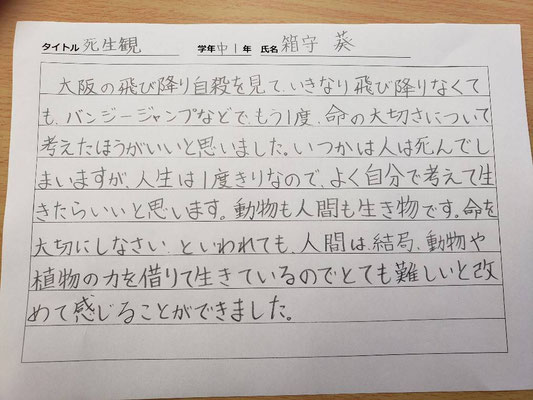 タイトル 死生観 学年 中1年 氏名 箱守 葵
大阪の飛び降り自殺を見て、いきなり飛び降りなくて
も、バンジージャンプなどで、もう1度、命の大切さについて
考えたほうがいいと思いました。いつかは人は死んでし
まいますが、人生は1度きりなので、よく自分で考えて生
きたらいいと思います。動物も人間も生き物です。命を
大切にしなさい、といわれても、人間は、結局、動物や
植物の力を借りて生きているのでとても難しいと改
めて感じることができました。